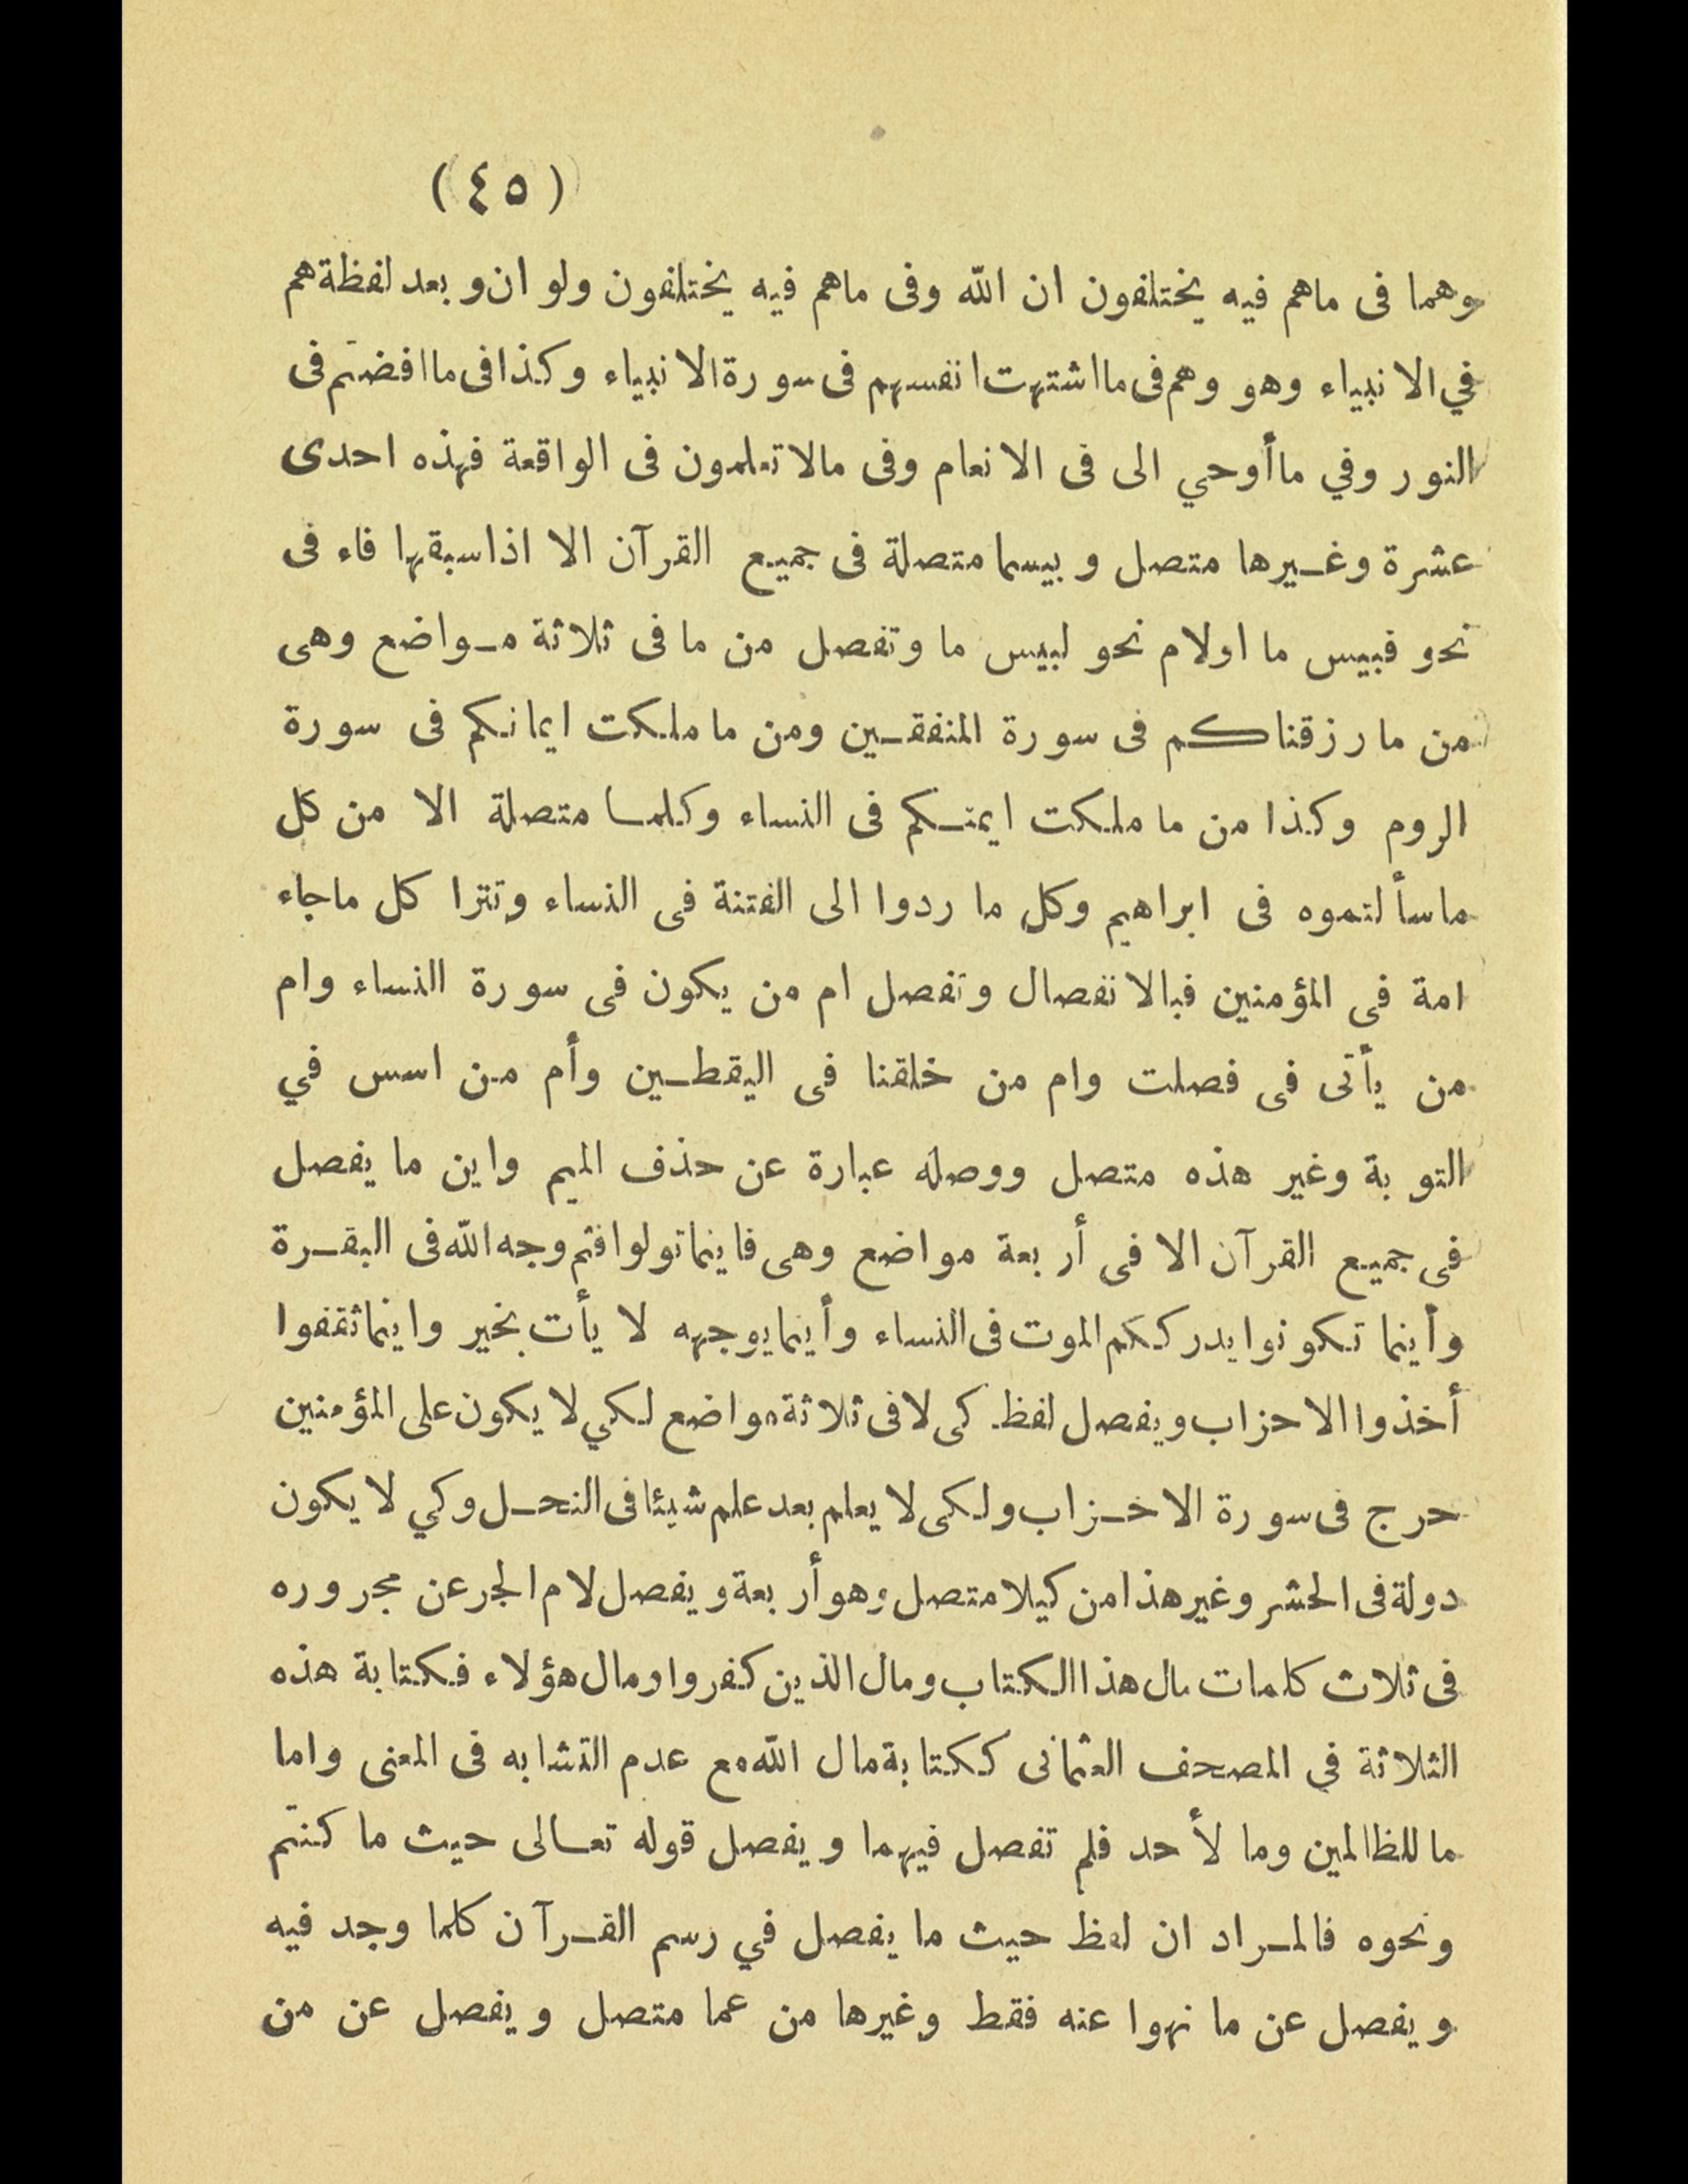 (٤٥)
وهما فى ماهم فيه يختلفون ان الله وفى ماهم فيه يختلفون ولو ان وبعد لفظة هم
في الانبياء وهو وهم فى ما اشتهت انفسهم فى سورة الانبياء وكذا فى ما افضتم فى
النور وفي ما أوحي الى فى الانعام وفى مالا تعلمون فى الواقعة فهذه احدى
عشرة وغيرها متصل وبيسما متصلة فى جميع القرآن الا اذا سبقها فاء فى
نحو فبيس ما اولام نحو لبيس ما وتفصل من ما فى ثلاثة مواضع وهى
من ما رزقناكم فى سورة المنفقين ومن ما ملكت ايمانكم فى سورة
الروم وكذا من ما ملكت ايمنكم فى النساء وكلما متصلة الا من كل
ما سألتموه فى ابراهيم وكل ما ردوا الى الفتنة فى النساء وتترا كل ماجاء
امة فى المؤمنين فبالانفصال وتفصل ام من يكون فى سورة النساء وام
من يأتى فى فصلت وام من خلقنا فى اليقطين وأم من اسس في
التوبة وغير هذه متصل ووصله عبارة عن حذف الميم واين ما يفصل
فى جميع القرآن الا فى أربعة مواضع وهى فاينما تولوا فثم وجه الله فى البقرة
وأينما تكونوا يدرككم الموت فى النساء وأينما يوجهه لا يأت بخير واينما ثقفوا
أخذوا الاحزاب ويفصل لفظ كى لا فى ثلاثة مواضع لكي لا يكون على المؤمنين
حرج فى سورة الاخزاب ولكى لا يعلم بعد علم شيئا فى النحل وكي لا يكون
دولة فى الحشر وغير هذا من كيلا متصل وهو أربعة ويفصل لام الجر عن مجروره
فى ثلاث كلمات مال هذا الكتاب ومال الذين كفروا ومال هؤلاء فكتابة هذه
الثلاثة في المصحف العثمانى ككتابة مال الله مع عدم التشابه فى المعنى واما
ما للظالمين وما لأحد فلم تفصل فيهما ويفصل قوله تعالى حيث ما كنتم
ونحوه فالمراد ان لفظ حيث ما يفصل في رسم القرآن كلما وجد فيه
ويفصل عن ما نهوا عنه فقط وغيرها من عما متصل ويفصل عن من